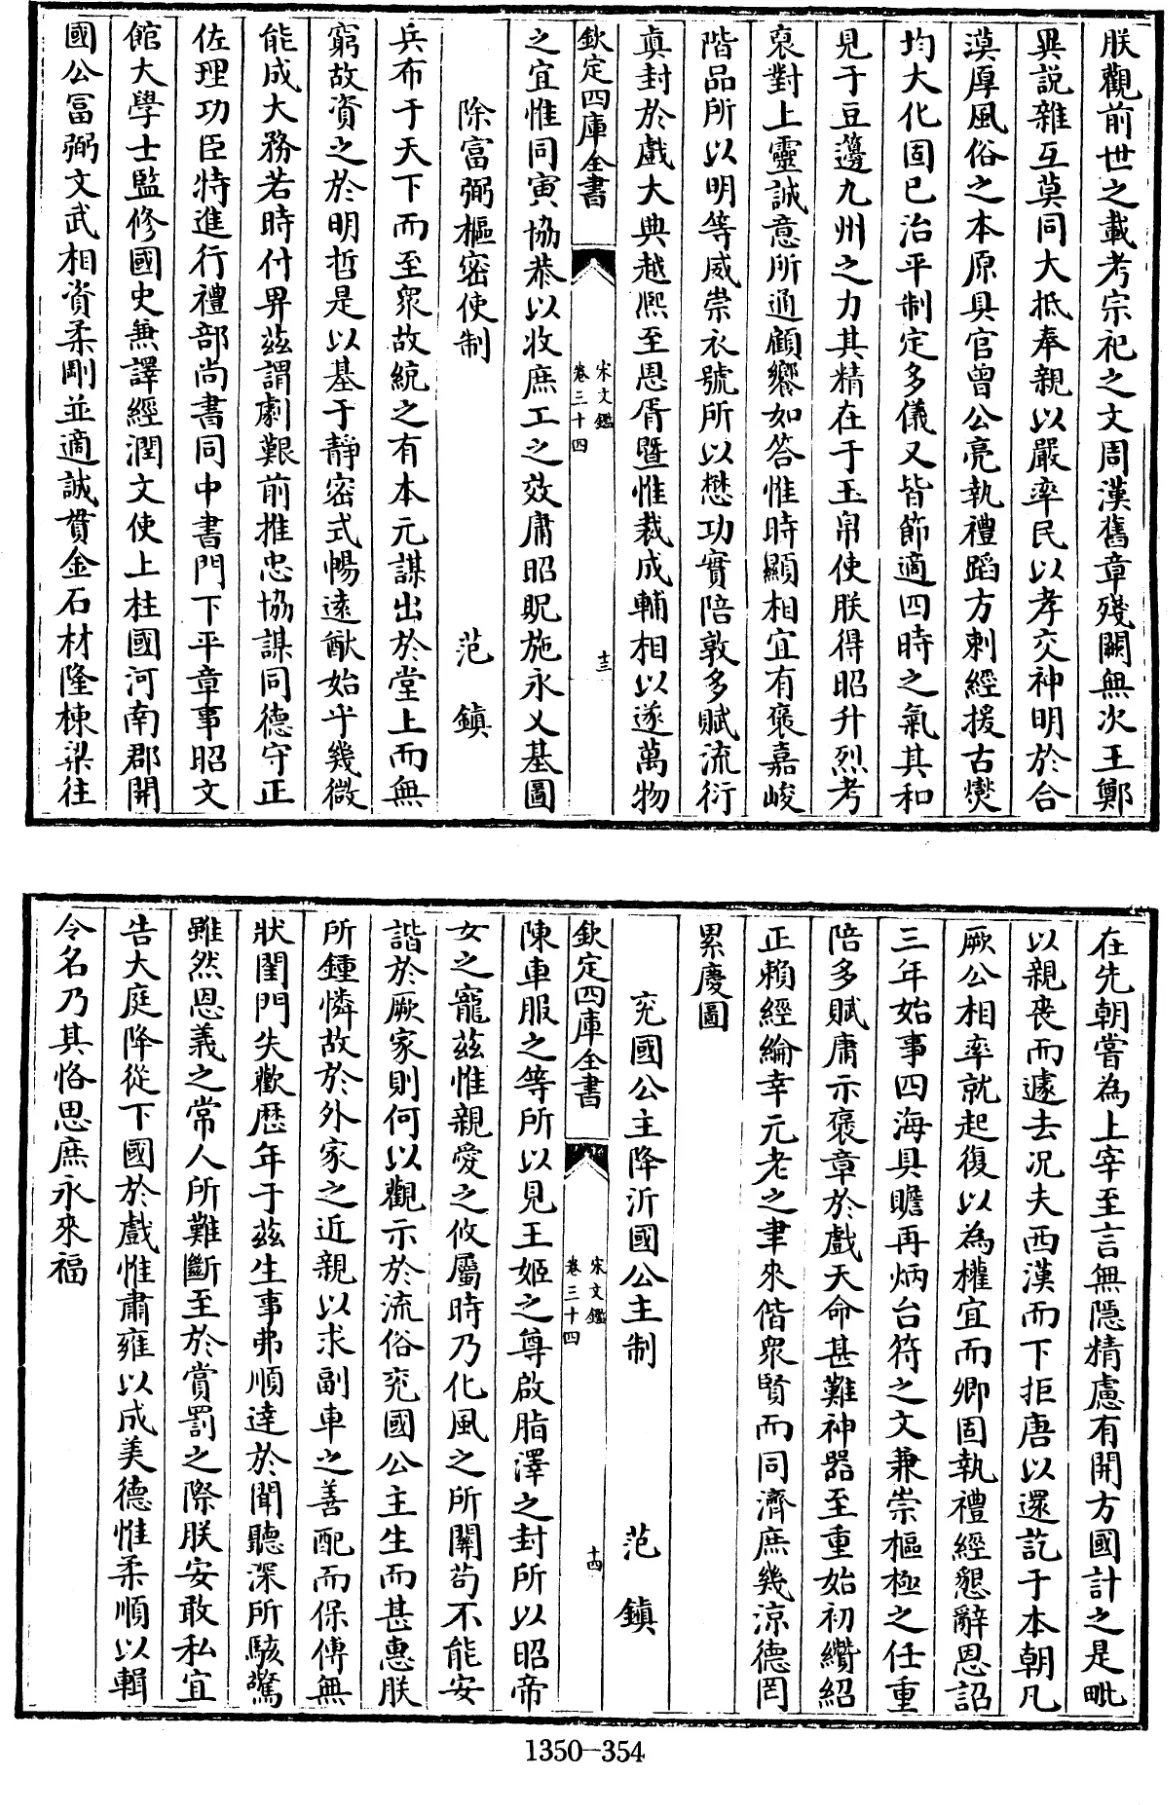 朕觀前世之載考宗祀之文周漢舊章殘闕無次王鄭
異説雜互莫同大抵奉親以嚴率民以孝交神明於合
漠厚風俗之本原具官曾公亮執禮蹈方刺經援古爕
均大化固已治平制定多儀又皆節適四時之氣其和
見于豆籩九州之力其精在于玉帛使朕得昭升烈考
裒對上靈誠意所通顧饗如答惟時顯相宜有褒嘉峻
階品所以明等威崇衣號所以懋功實陪敦多賦流衍
真封於戲大典越熙至恩胥暨惟裁成輔相以遂萬物
欽定四庫全書
宋文鑑
卷三十四
十三
之宜惟同寅協恭以收庶工之效庸昭貺施永乂基圖
除富弼樞密使制 范鎮
兵布于天下而至衆故統之有本元謀出於堂上而無
窮故資之於明哲是以基于静密式暢逺猷始乎幾微
能成大務若時付畀兹謂劇艱前推忠協謀同德守正
佐理功臣特進行禮部尚書同中書門下平章事昭文
館大學士監修國史兼譯經潤文使上柱國河南郡開
國公富弼文武相資柔剛並適誠貫金石材隆棟梁往
在先朝嘗為上宰至言無隱精慮有開方國計之是毗
以親喪而遽去况夫西漢而下拒唐以還訖于本朝凡
厥公相率就起復以為權宜而卿固執禮經懇辭恩詔
三年始事四海具瞻再炳台符之文兼崇樞極之任重
陪多賦庸示褒章於戲天命甚難神器至重始初纘紹
正賴經綸幸元老之聿來偕衆賢而同濟庶幾涼德罔
累慶圖
兖國公主降沂國公主制 范鎮
欽定四庫全書
宋文鑑
卷三十四
十四
陳車服之等所以見王姬之尊啟脂澤之封所以昭帝
女之寵兹惟親愛之攸屬時乃化風之所闗茍不能安
諧於厥家則何以觀示於流俗兖國公主生而甚惠朕
所鍾憐故於外家之近親以求副車之善配而保傅無
狀閨門失歡歴年于兹生事弗順達於聞聽深所駭驚
雖然恩義之常人所難斷至於賞罰之際朕安敢私宜
告大庭降從下國於戲惟肅雍以成美德惟柔順以輯
令名乃其恪思庶永來福
1350-354